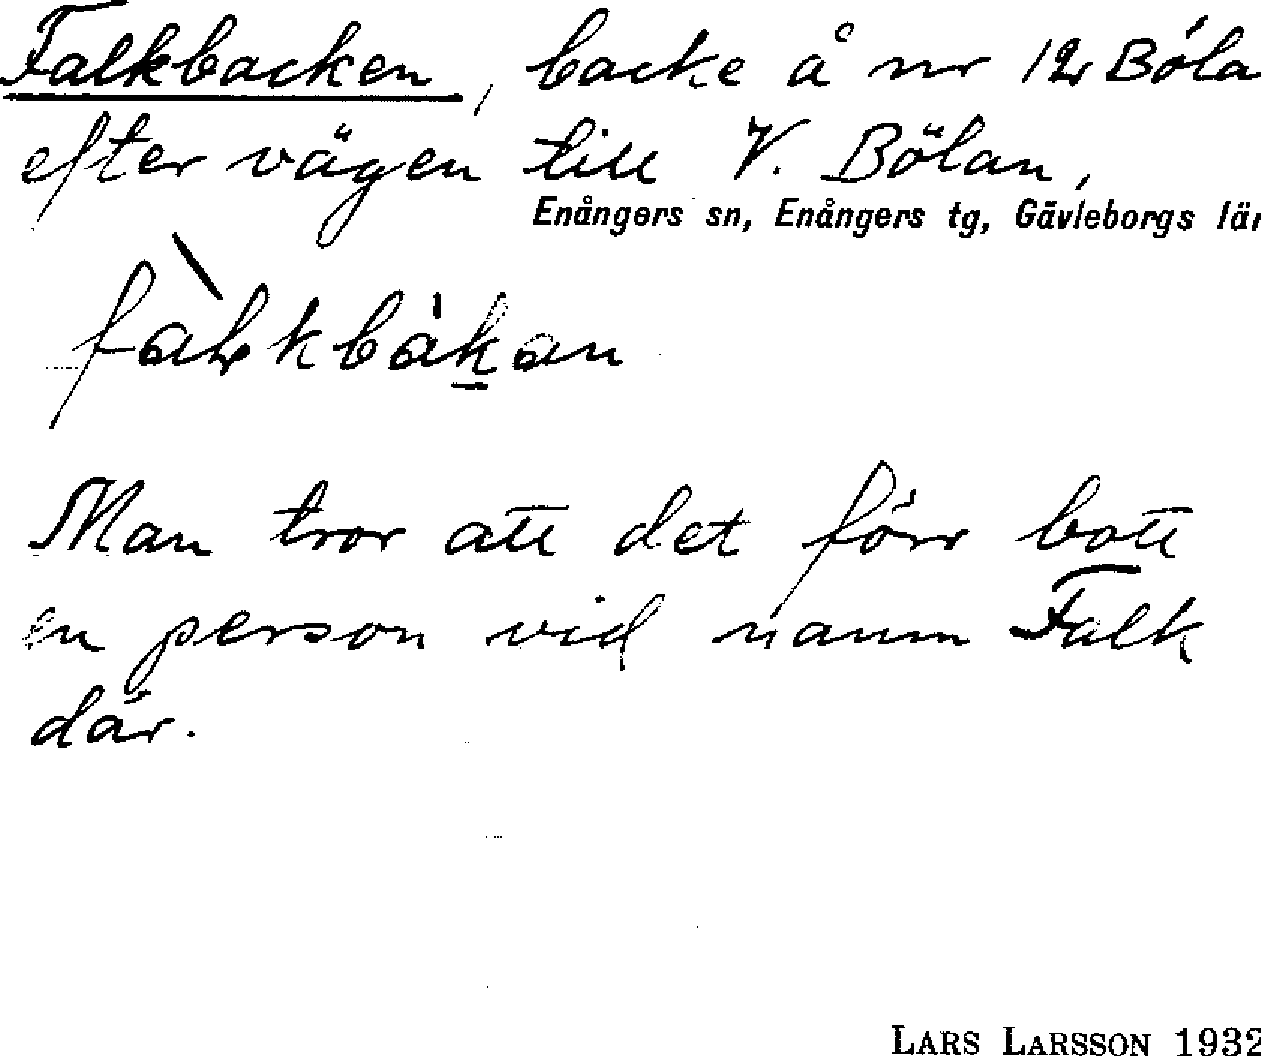 Falkbacken, backe å nr 12 Böla
efter vägen till V. Bölan,
Enångers sn, Enångers tg, Gävleborgs län
fàlkbàkan
Man tror att det förr bott
en person vid namn Falk
där.
LARS LARSSON 1932